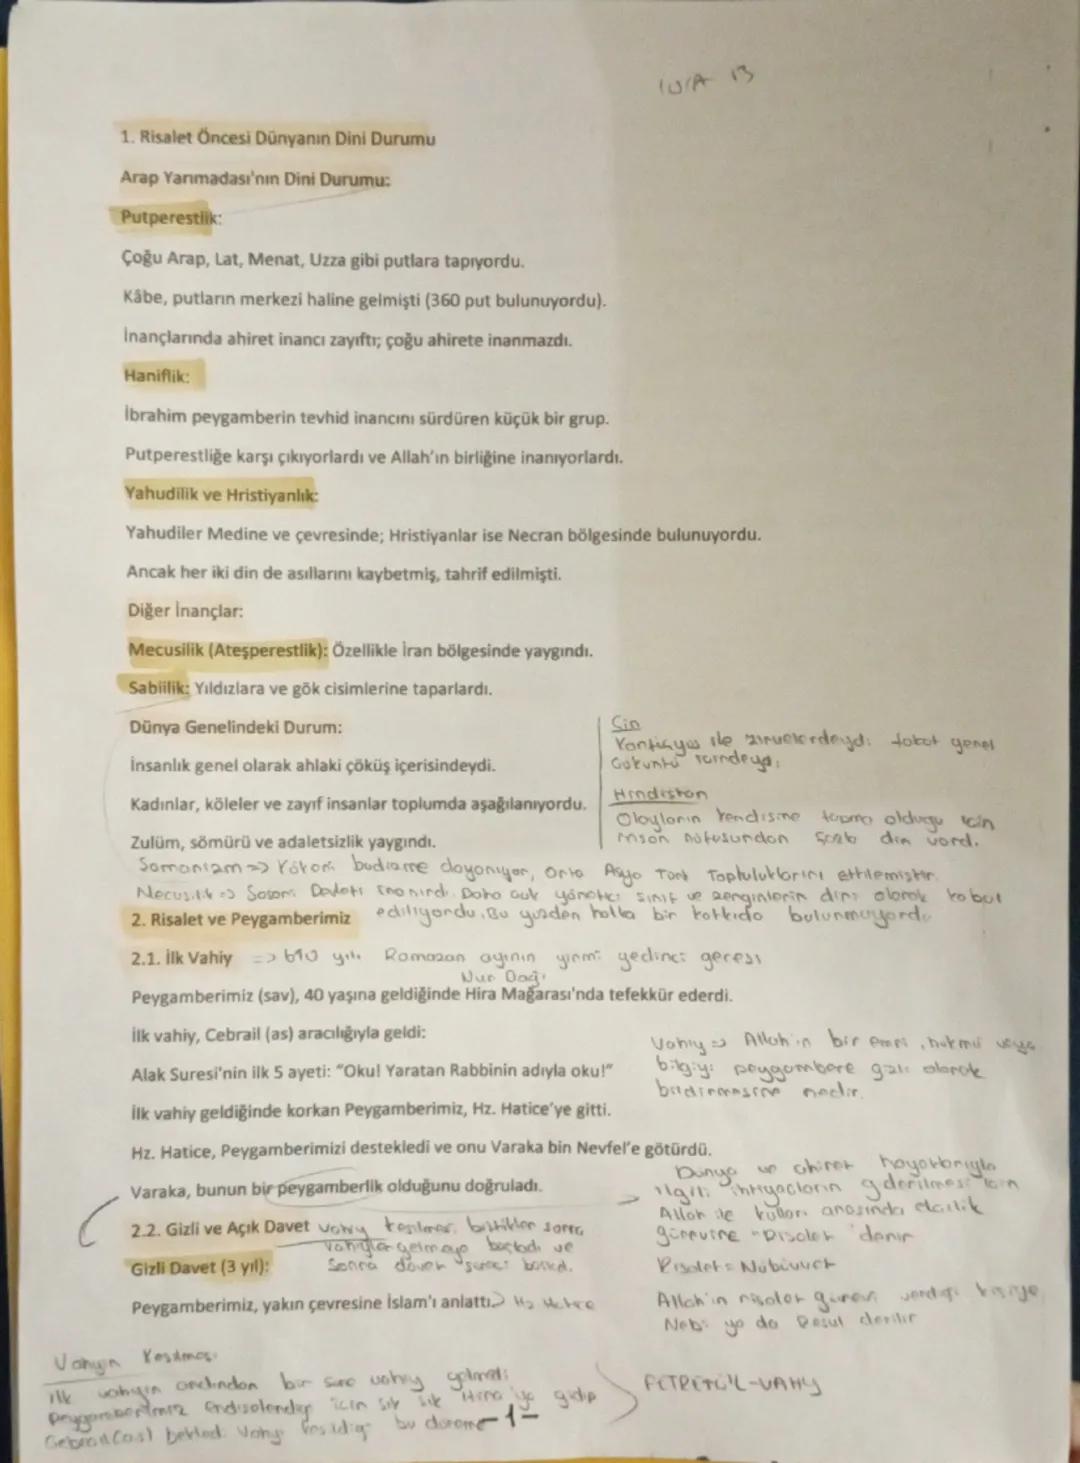 10/A 13
1. Risalet Öncesi Dünyanın Dini Durumu
Arap Yarımadası'nın Dini Durumu:
Putperestlik:
Çoğu Arap, Lat, Menat, Uzza gibi putlara tapıyordu.
Kâbe, putların merkezi haline gelmişti (360 put bulunuyordu).
İnançlarında ahiret inancı zayıftı; çoğu ahirete inanmazdı.
Haniflik:
İbrahim peygamberin tevhid inancını sürdüren küçük bir grup.
Putperestliğe karşı çıkıyorlardı ve Allah'ın birliğine inanıyorlardı.
Yahudilik ve Hristiyanlık:
Yahudiler Medine ve çevresinde; Hristiyanlar ise Necran bölgesinde bulunuyordu.
Ancak her iki din de asıllarını kaybetmiş, tahrif edilmişti.
Diğer İnançlar:
Mecusilik (Ateşperestlik): Özellikle İran bölgesinde yaygındı.
Sabiilik: Yıldızlara ve gök cisimlerine taparlardı.
Dünya Genelindeki Durum:
İnsanlık genel olarak ahlaki çöküş içerisindeydi.
Kadınlar, köleler ve zayıf insanlar toplumda aşağılanıyordu.
Zulüm, sömürü ve adaletsizlik yaygındı.
Çin
ile zirvelerdeydi fakat genel
Hindistan
Olayların kendisine tapma olduğu için
insan nüfusundan fazla din vardı.
Şamanizm => büdizme dayanıyor, Orta Asya Türk Topluluklarını etkilemiştir.
Mecusilik => Sasani Devleti inanırdı. Daha çok yönetici sınıf ve zenginlerin dini olarak kabul
ediliyordu. Bu yüzden halka bir katkıda bulunmuyordu
2. Risalet ve Peygamberimiz
2.1. İlk Vahiy => 610 yılı Ramazan ayının yirmi yedinci gecesi
Nur Dağı
Peygamberimiz (sav), 40 yaşına geldiğinde Hira Mağarası'nda tefekkür ederdi.
İlk vahiy, Cebrail (as) aracılığıyla geldi:
Alak Suresi'nin ilk 5 ayeti: "Oku! Yaratan Rabbinin adıyla oku!"
İlk vahiy geldiğinde korkan Peygamberimiz, Hz. Hatice'ye gitti.
Vahiy => Allah'ın bir emri, hükmü veya
bilgiyi peygambere gizli olarak
bildirmesine nedir.
Hz. Hatice, Peygamberimizi destekledi ve onu Varaka bin Nevfel'e götürdü.
Varaka, bunun bir peygamberlik olduğunu doğruladı.
Dünya ve ahiret hayatlarıyla
ilgili ihtiyaçların giderilmesi için
Allah ile kulları arasında elçilik
görevine "Risalet" denir
Risalet = Nübüvvet
Allah'ın risalet görevi verdiği kişiye
Nebi ya da Resul denilir
2.2. Gizli ve Açık Davet Vahiy kesilmesi bittikten sonra
vahiyler gelmeye başladı ve
sonra davet süreci başladı.
Gizli Davet (3 yıl):
Peygamberimiz, yakın çevresine İslam'ı anlattı. Hz Hatice
Vahyin Kesilmesi
İlk vahyin ardından bir süre vahiy gelmedi
Peygamberimiz endişelendiği için sık sık Hira'ya gidip
Cebrail(as)'i bekledi. Vahyi kesildiği bu döneme
FETRETÜ'L-VAHY
-1-